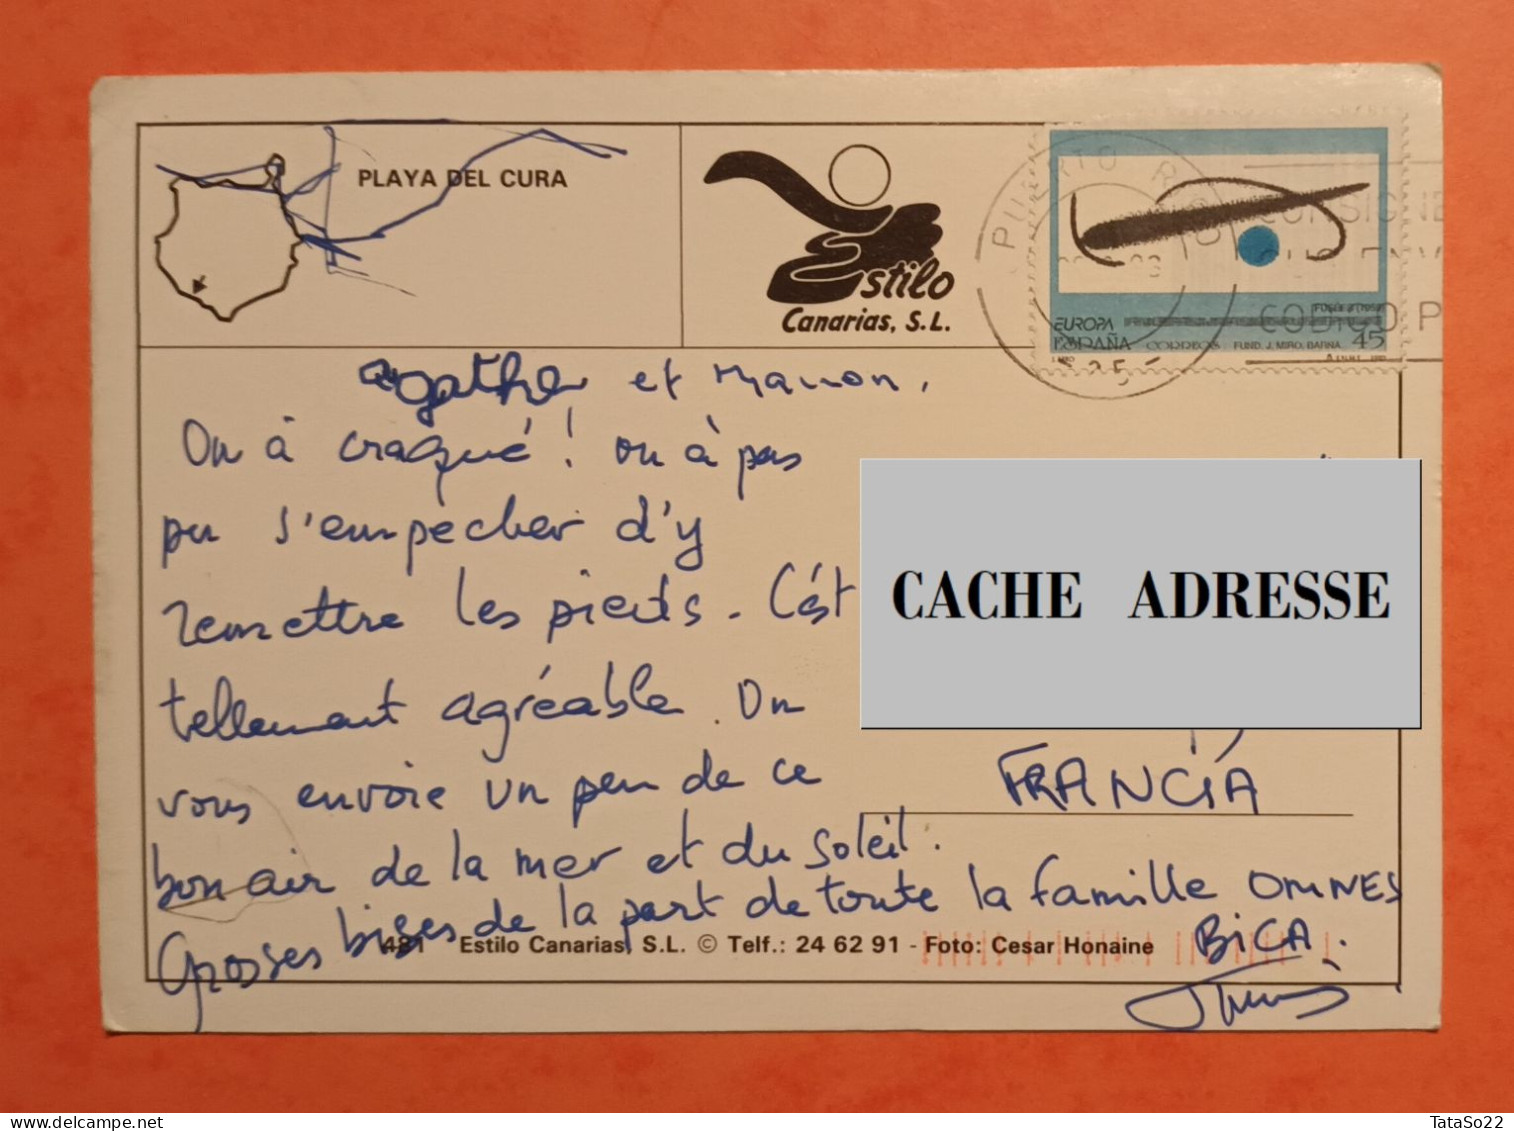 PLAYA DEL CURA
Estilo
Canarias, S.L.
PUERTO RICO
CONSIGNE
CODIGO P
EUROPA
ESPAÑA CORREOS FUND. J. MIRO, BARNA 45
agathe et Manon,
On à craqué! on à pas
pu s'empêcher d'y
remettre les pieds. C'est
tellement agréable. On
vous envoie un peu de ce
bon air de la mer et du soleil.
Grosses bises de la part de toute la famille OMNES
BICA.
CACHE ADRESSE
FRANCIA
481 Estilo Canarias, S.L. © Telf.: 24 62 91 - Foto: Cesar Honaine
TataSo22